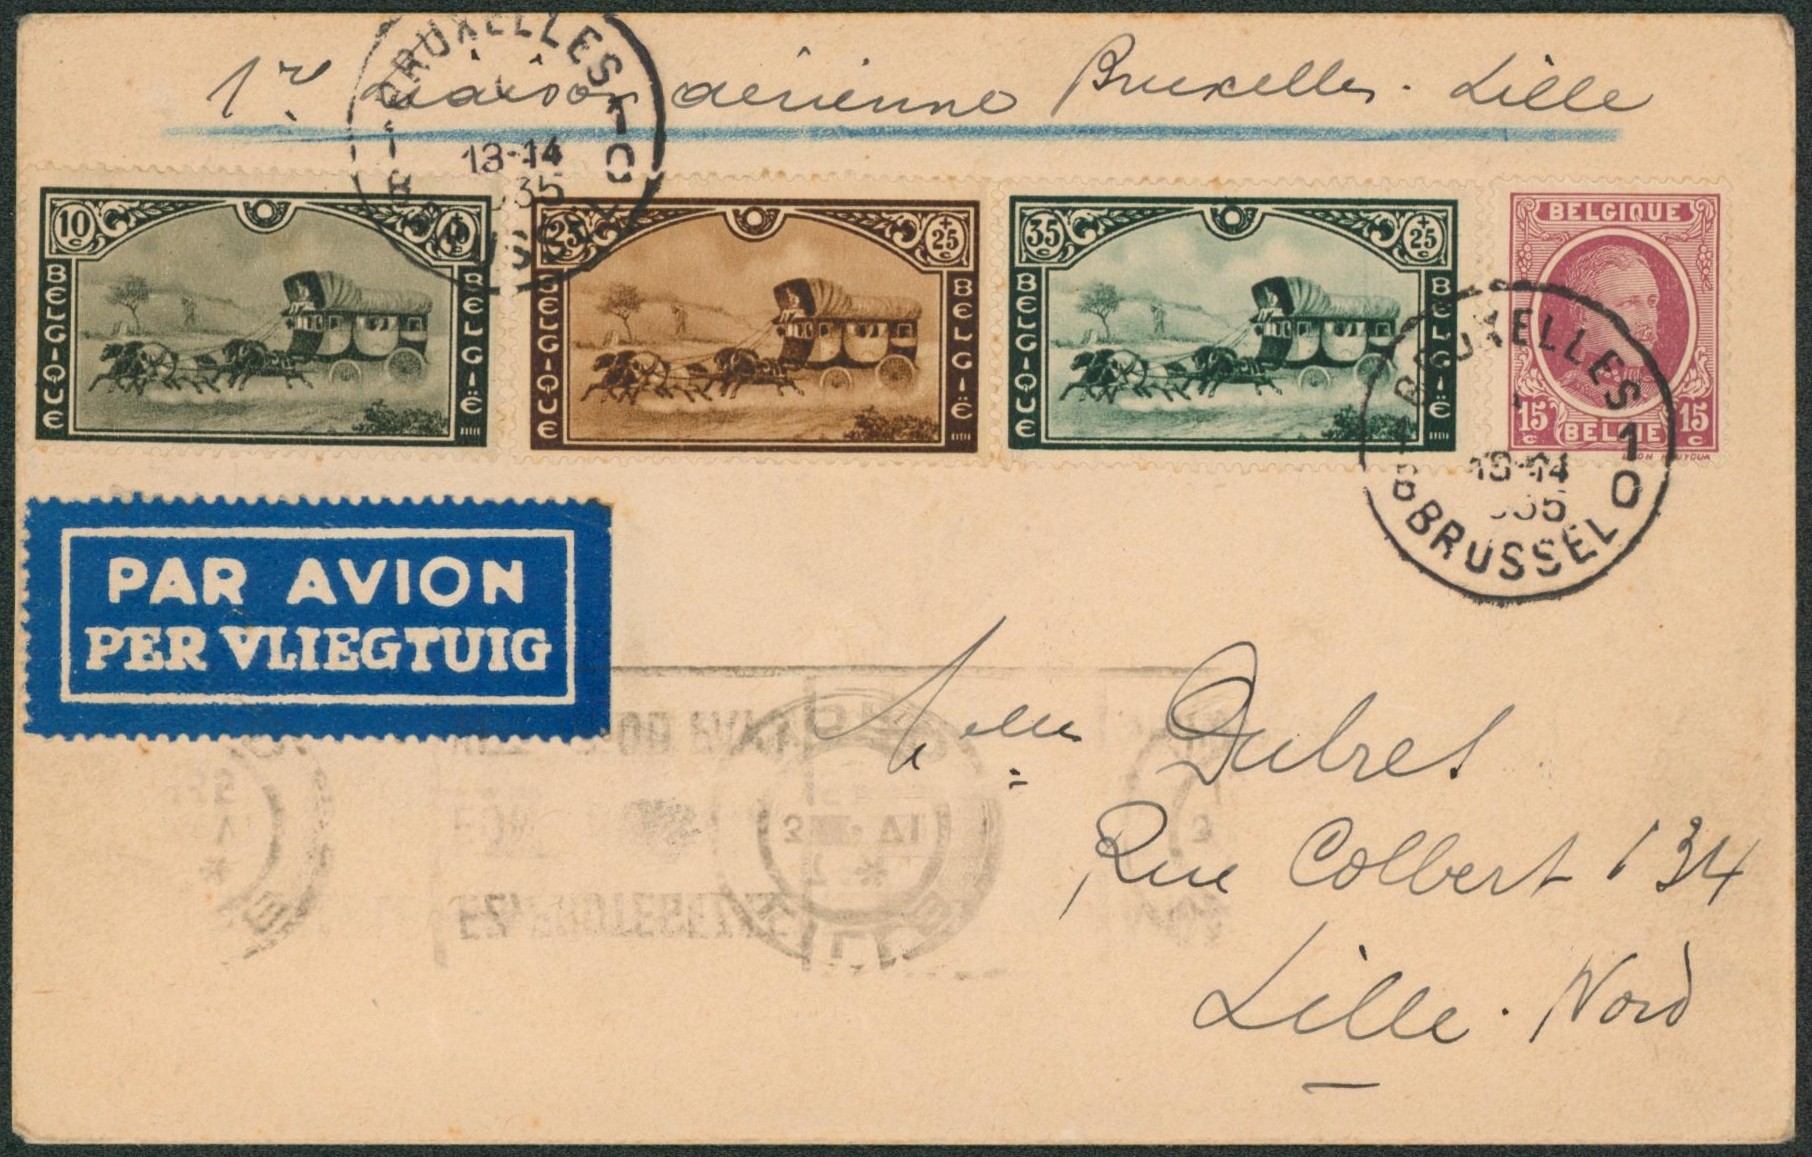 1re liaison aérienne Bruxelles - Lille
BRUXELLES 1
13-14
935
BRUSSEL
1 0
10 c
BELGIQUE
BELGIË
25 c
+25 c
BELGIQUE
BELGIË
35 c
+25 c
BELGIQUE
BELGIË
BELGIQUE
15 c
15 c
BELGIË
BRUXELLES
1 0
13-14
935
BRUSSEL
PAR AVION
PER VLIEGTUIG
Dubret
Rue Colbert 134
Lille - Nord
LILLE